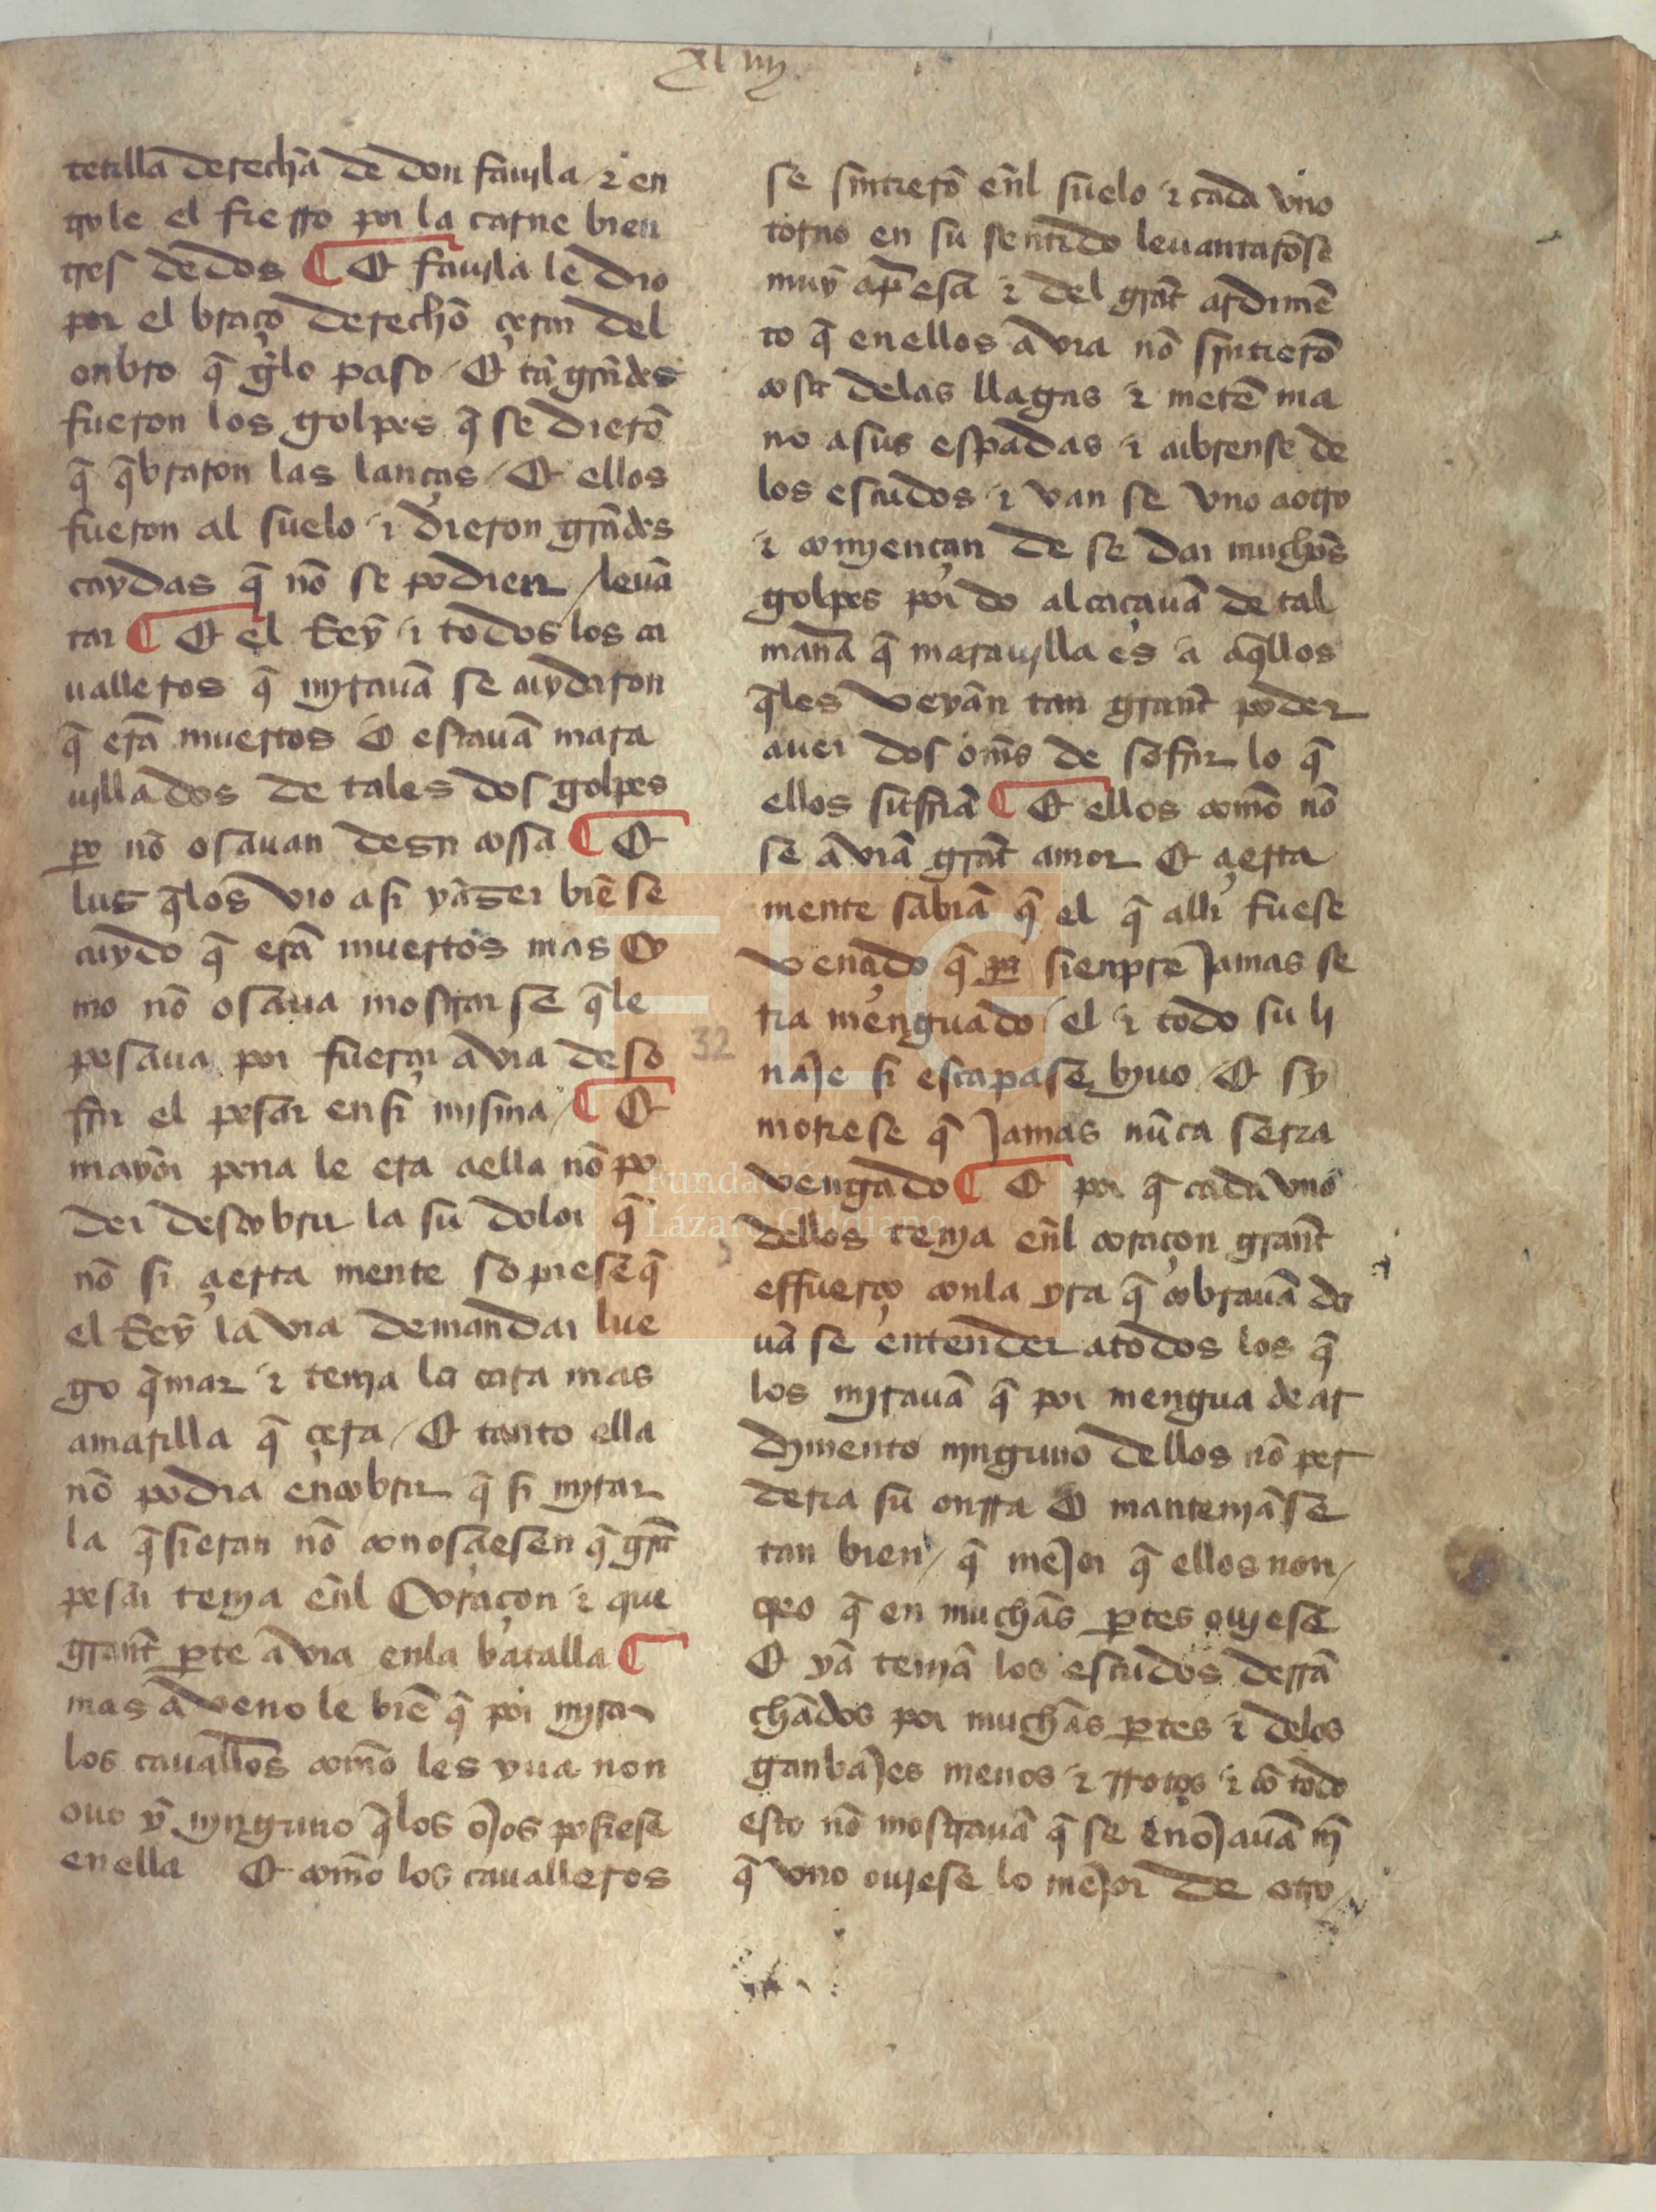 xl iiij
tetilla derecha de don fauila ⁊ en
trole el fierro por la carne bien
tres dedos ¶ Et fauila le dio
por el braço derecho çerca del
onbro q̄ gelo paso / Et tã grãdes
fueron los golpes q̄ se dierõ
q̄ q̄braron las lanças / Et ellos
fueron al suelo ⁊ dieron grãdes
caydas q̄ nõ se podien / leuã
tar ¶ Et el Rey ⁊ todos los ca
ualleros q̄ myrauã se cuydaron
q̄ erã muertos Et estauã mara
uillados de tales dos golpes
ꝑo nõ osauan desir cossa ¶ Et
lus q̄los vio asi yaser biẽ se
cuydo q̄ erã muertos mas co
mo nõ osaua mostrar se q̄le
pesaua por fuerça avia de so
frir el pesar en si misma / ¶ Et
mayor pena le era aella nõ po
der descobrir la su dolor q̄
nõ si çierta mente sopiese q̄
el Rey la avia demandar lue
go q̄mar ⁊ tenia la cara mas
amarilla q̄ çera / Et tanto ella
nõ podia encobrir q̄ si myrar
la q̄sieran nõ conosçiesen q̄ grãt
pesar tenya eñl Coraçon ⁊ que
grant ꝑte avia enla batalla ¶
mas aveno le biẽ q̄ por myrar
los cauall̃os com̃o les yua non
ouo y nynguno q̄los ojos posiese
en ella Et com̃o los caualleros
se sintierõ eñl suelo ⁊ cada vno
torno en su sentido leuantarõse
muy ap̃esa ⁊ del grãt ardimẽ
to q̄ enellos avia nõ sintierõ
cosa delas llagas ⁊ metẽ ma
no asus espadas ⁊ cubrense de
los escudos ⁊ van se vno aotro
⁊ comyençan de se dar muchos
golpes por do alcaçauã de tal
man̄a q̄ marauylla es a aq̄llos
q̄les veyan tan grant poder
auer dos om̃s de sofrir lo q̄
ellos sufriã ¶ Et ellos com̃o nõ
se aviã grãt amor Et çierta
mente sabiã q̄ el q̄ alli fuese
vençido q̄ ꝑa sienpre Jamas se
ria menguado el ⁊ todo su li
naje si escapase byuo Et sy
moriese q̄ Jamas nũca seria
vengado ¶ Et por q̄ cada vno
dellos tenya eñl coraçon grant
effuerço conla yra q̄ cobrauã da
uã se entender atodos los q̄
los myrauã q̄ por mengua de ar
dymento nynguno dellos nõ per
deria su onrra Et mantenyãse
tan bien / q̄ mejor q̄ ellos non /
creo q̄ en muchas ꝑtes ouyese
Et ya tenyã los escudos desfa
chados por muchas ꝑtes ⁊ delos
ganbajes menos ⁊ rrotos ⁊ cõ todo
esto nõ mostrauã q̄ se enojauã nj̃
q̄ vno ouyese lo mejor de otro /
32
FLG
Fundación
Lázaro Galdiano